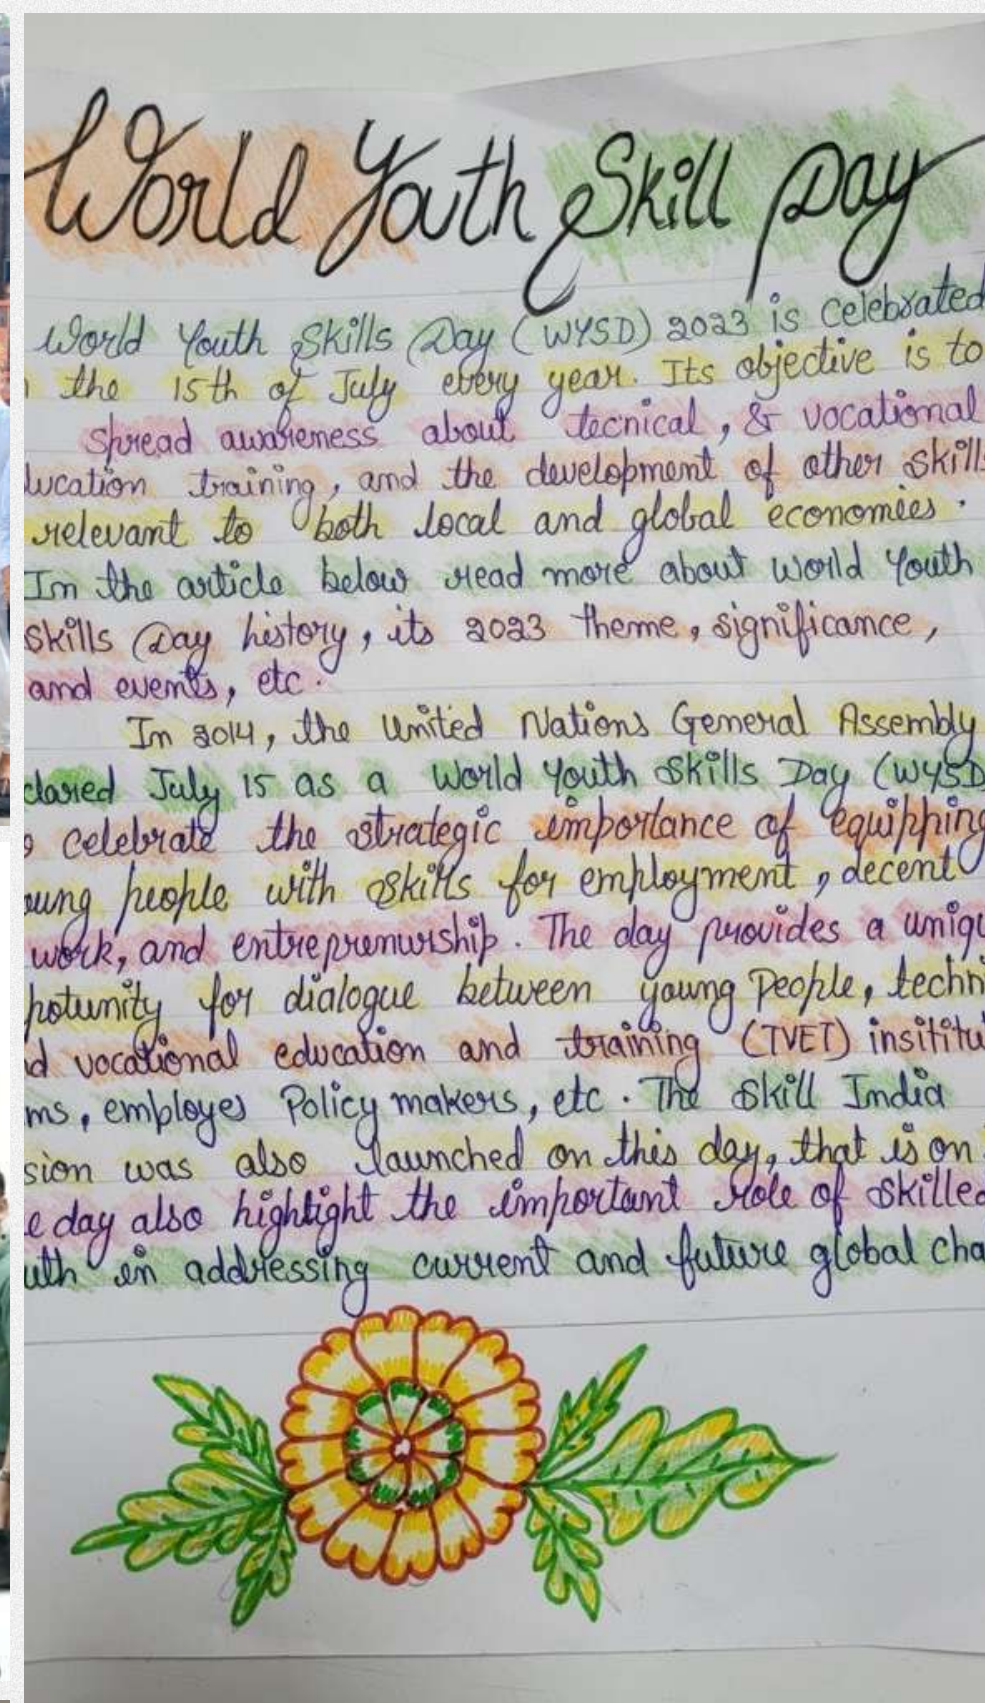 World Youth Skill Day
World Youth Skills Day (WYSD) 2023 is celebrated
the 15th of July every year. Its objective is to
spread awareness about tecnical, & vocational
ucation training, and the development of other skills
relevant to both local and global economies.
In the article below read more about World Youth
Skills Day history, its 2023 theme, significance,
and events, etc.
In 2014, the United Nations General Assembly
clared July 15 as a World Youth Skills Day (WYSD
celebrate the strategic importance of equipping
oung people with skills for employment, decent
work, and entreprenurship. The day provides a uniqu
potunity for dialogue between young People, techni
d vocational education and training (TVET) insititu
ms, employes Policy makers, etc. The Skill India
sion was also launched on this day, that is on
e day also highlight the important role of skilled
uth in addressing current and future global cha